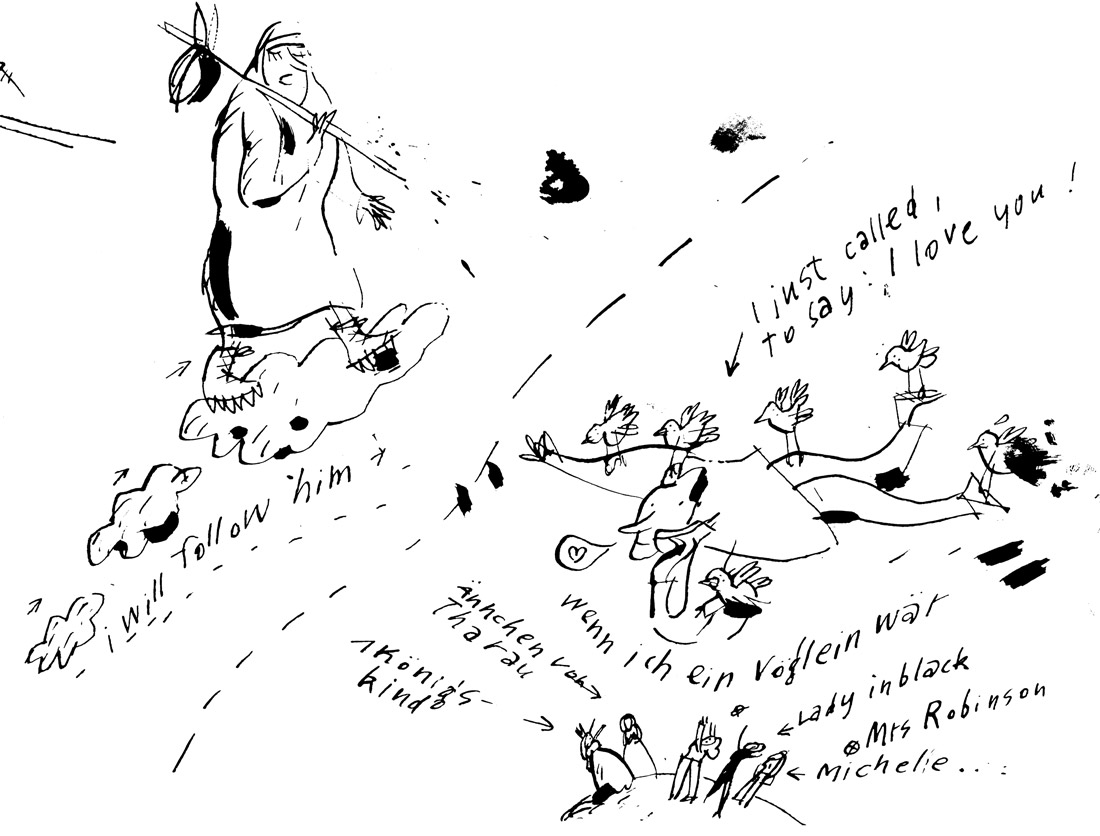 I just called,
to say: I love you!
i will follow him
Ännchen von
Tharau
Königs-
kind
wenn ich ein vöglein wär
Lady in black
Mrs Robinson
Michelle....